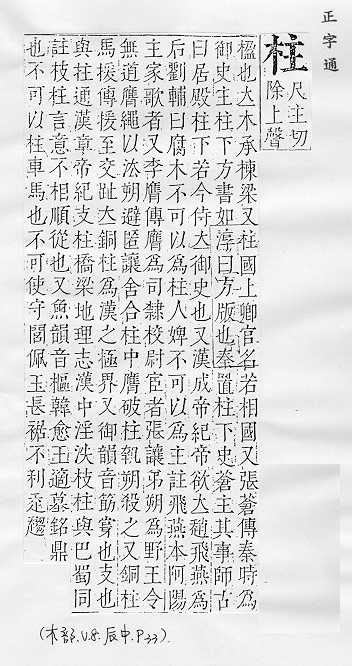 正字通
柱
尺主切
除上聲
楹也大木承棟梁又柱國上卿官名若相國又張蒼傳秦時為
御史主柱下方書如淳曰方版也奉置柱下史蒼主其事師古
曰居殿柱下若今侍大御史也又漢成帝紀帝欲大趙飛燕為
后劉輔曰腐木不可以為柱人婢不可以為主註飛燕本阿陽
主家歌者又李膺傳膺為司隸校尉宦者張讓弟朔為野王令
無道膺繩以法朔避匿讓舍合柱中膺破柱執朔殺之又銅柱
馬援傳援至交趾大銅柱為漢之極界又御韻音筯穿也支也
與柱通漢章帝紀支柱橋梁地理志漢中淫泆枝柱與巴蜀同
註枝柱言意不相順從也又魚韻音樞韓愈王適墓銘鼎
也不可以柱車馬也不可使守閭佩玉長裾不利走趨
(木部.V.8.辰中.P.33).